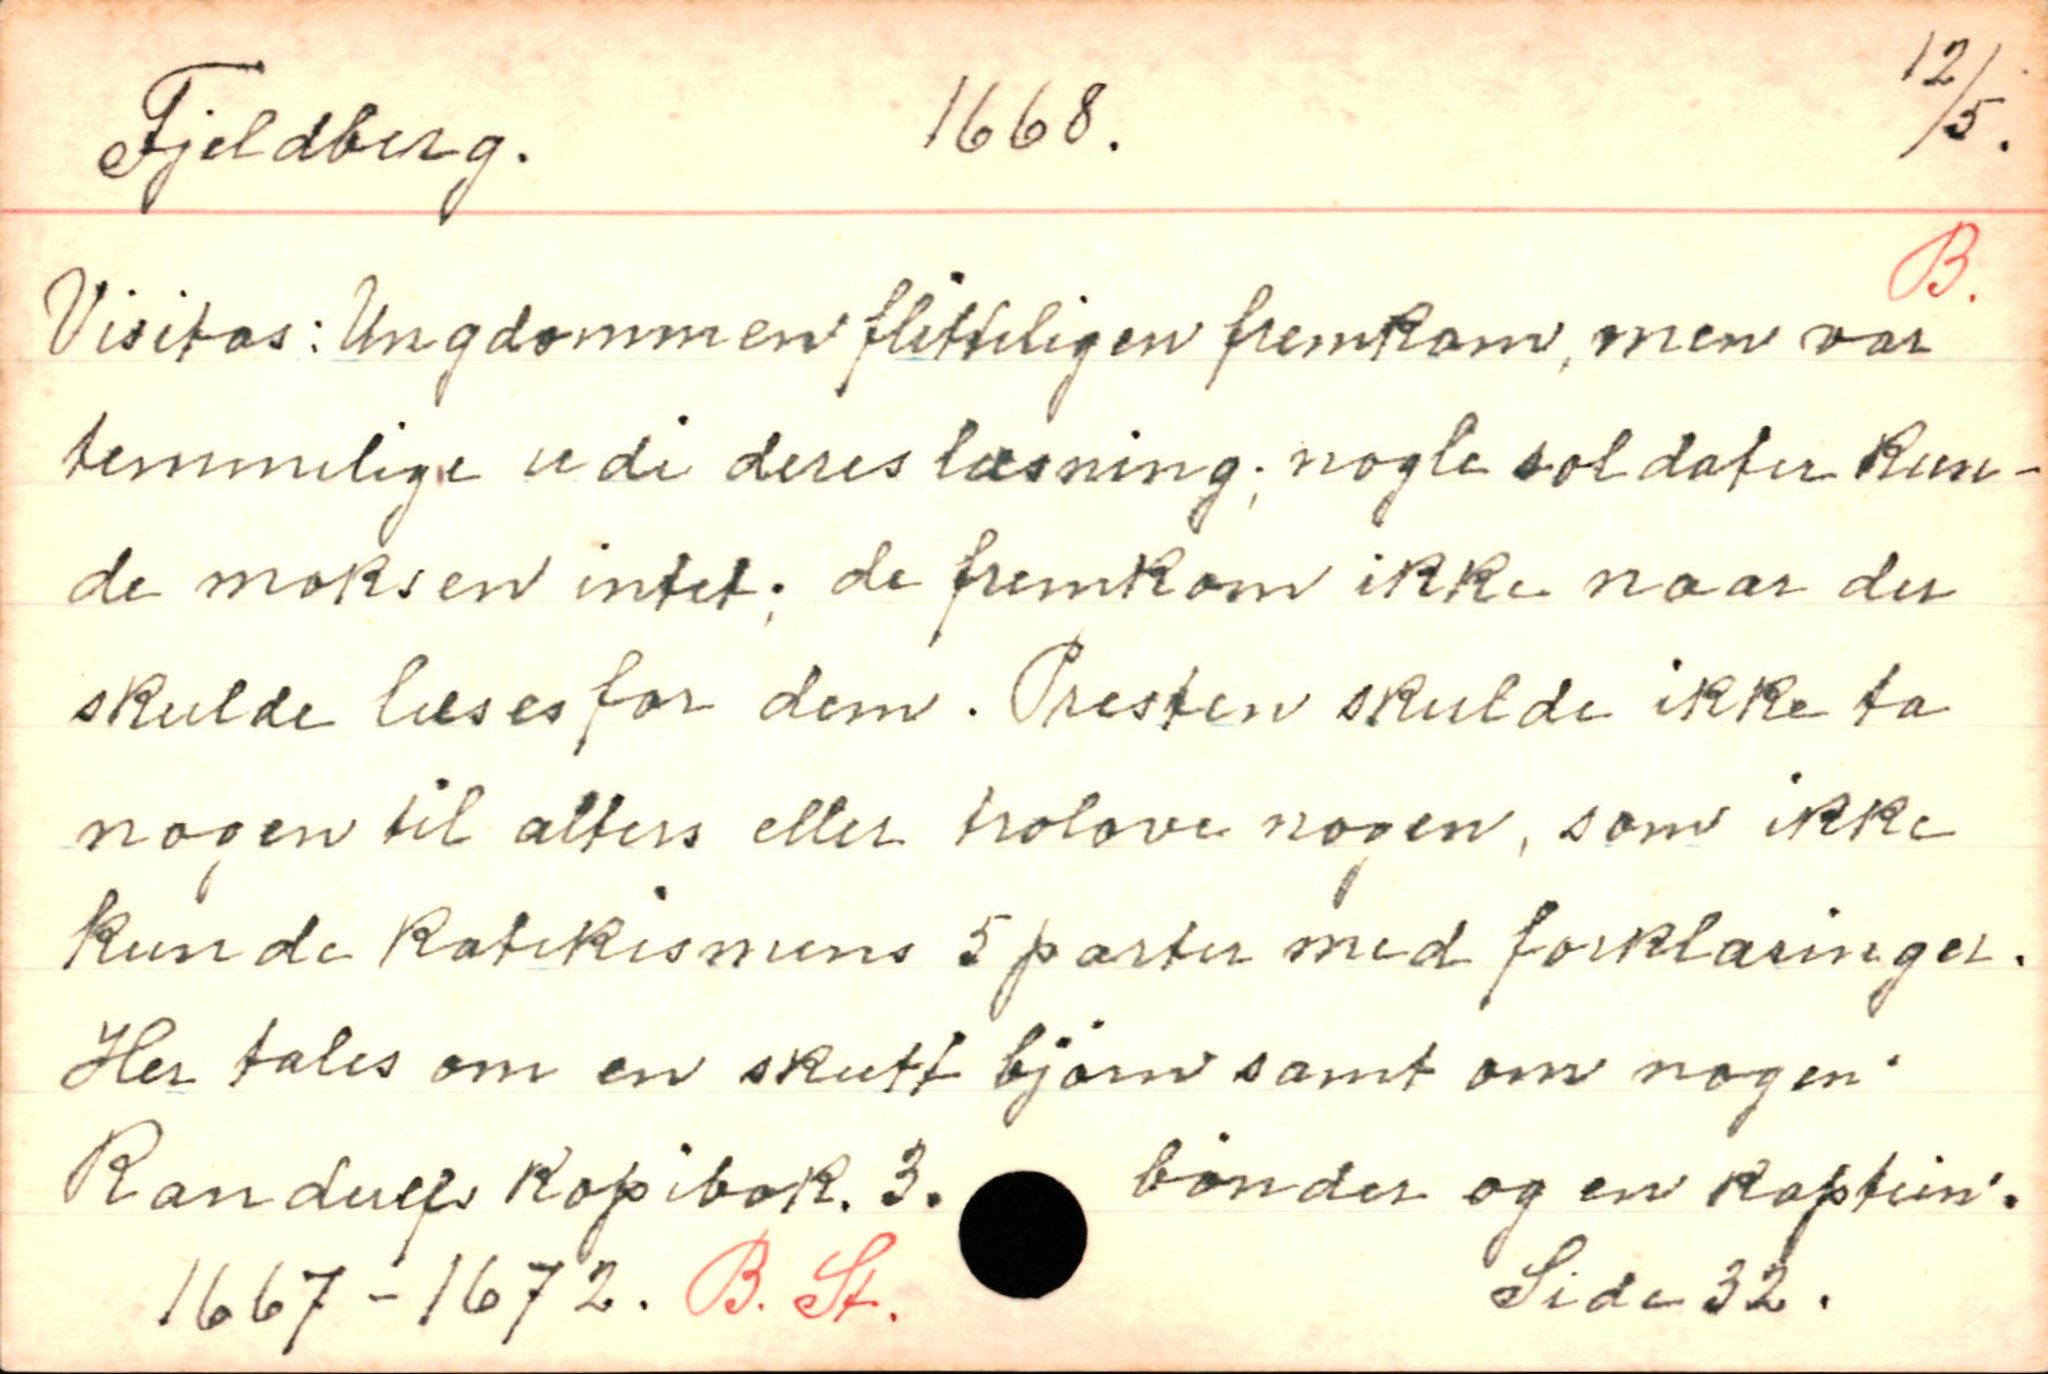 Fjeldberg. 1668. 12/5.
B.
Visitas: Ungdommen flitteligen fremkom, men var
temmelige udi deres læsning; nogle soldater kun-
de moksen intet; de fremkom ikke naar der
skulde læses for dem. Presten skulde ikke ta
nogen til alters eller trolove nogen, som ikke
kunde katekismens 5 parter med forklaringer.
Her tales om en skutt björn samt om nogen
Randulfs Kopibok. 3. bönder og en kaptein.
1667-1672. B. St. Side 32.